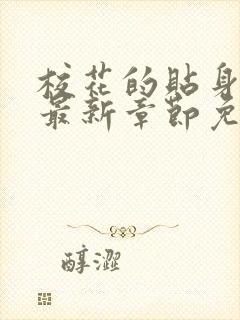 校花的贴身
最新章节免
醇澀